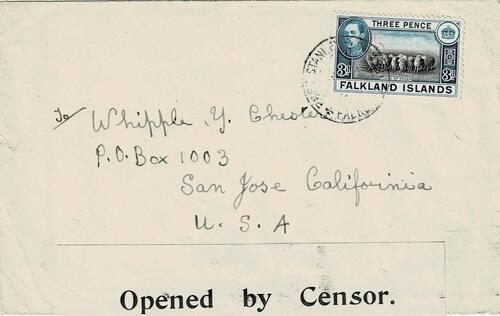 THREE PENCE
3d 3d
FALKLAND ISLANDS
STANLEY
To Whipple Y. Chester
P.O. Box 1003
San Jose California
U. S. A
Opened by Censor.